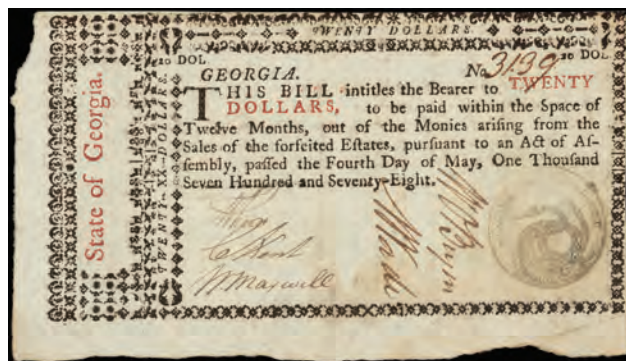 TWENTY DOLLARS
20 DOL
20 DOL
GEORGIA. No 3139
THIS BILL intitles the Bearer to TWENTY
DOLLARS, to be paid within the Space of
Twelve Months, out of the Monies ariſing from the
Sales of the forfeited Eſtates, purſuant to an Act of Aſ-
ſembly, paſſed the Fourth Day of May, One Thouſand
Seven Hundred and Seventy-Eight.
C Kent
W Maxwell
Wm
Wade
State of Georgia.
TWENTY-XX-DOLLARS.